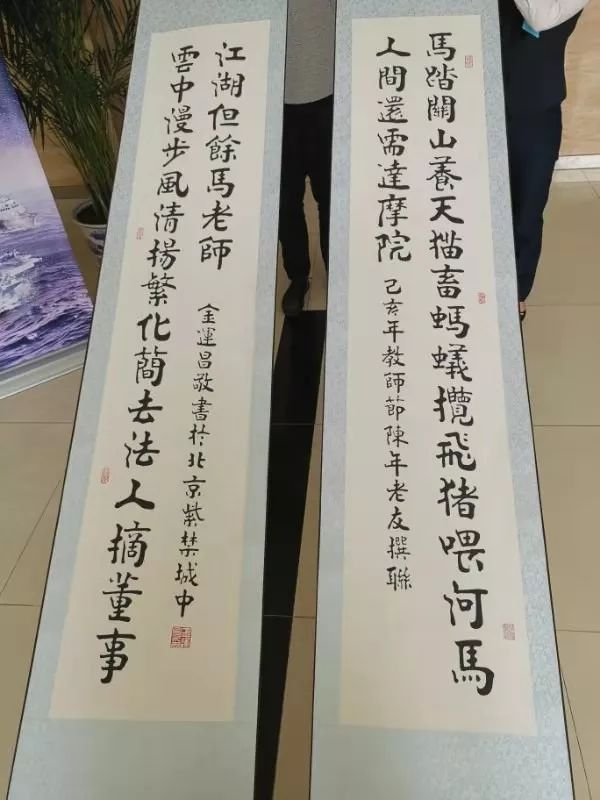 馬踏關山養天猫畜螞蟻攬飛猪喂河馬
人間還需達摩院
己亥年教師節陳年老友撰聯
雲中漫步風清揚繁化簡去法人摘董事
江湖但餘馬老師
金運昌敬書於北京紫禁城中